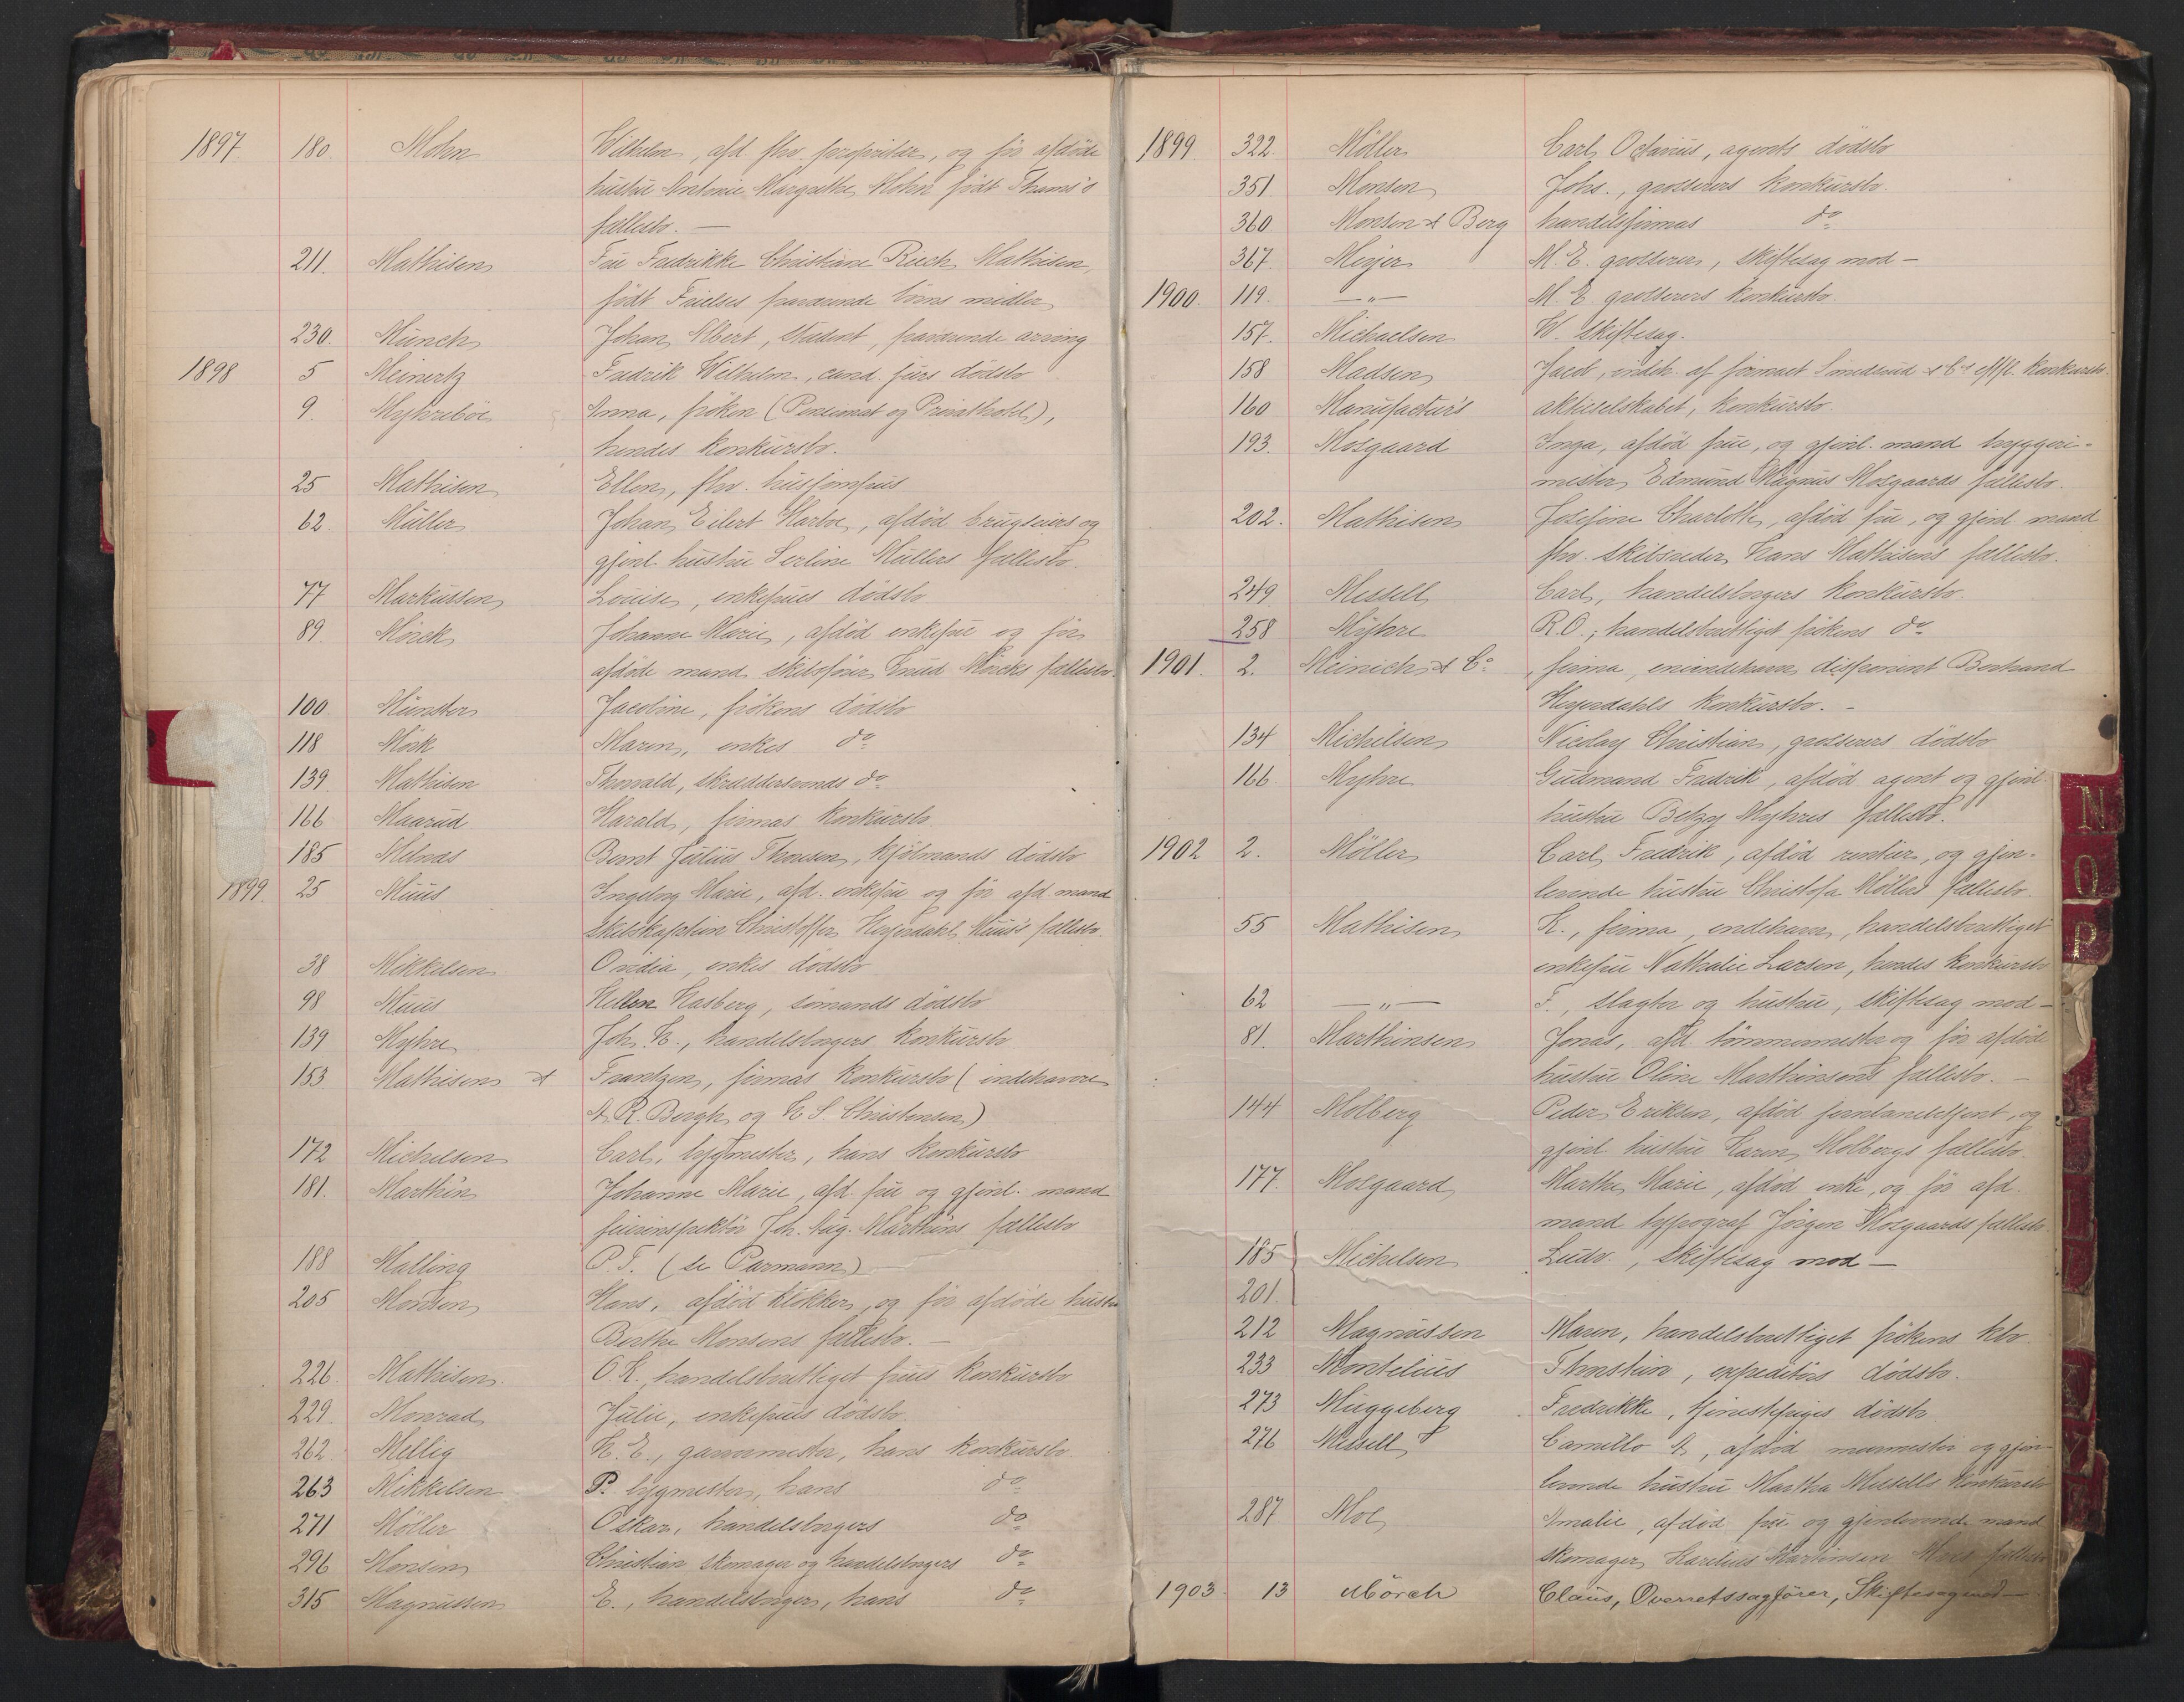 1897 180. Mohn Wilhelm, afd. fhv. proprietær, og før afdøde
hustru Antonie Margrethe Mohn født Thams's
fællesbo. —
211. Mathisen Fru Fredrikke Christiane Ruch Mathisen,
født Frielses fraværende søns midler
230. Münch Johan Albert, student, fraværende arving
1898 5 Meinertz Fredrik Wilhelm, cand. jurs dødsbo
9. Myhreboe Anna, frøken (Pensionat og Privathotel),
hendes konkursbo.
25 Mathisen Ellen, fhv. husjomfrus
62 Müller Johan Eilert Harboe, afdød brugseiers og
gjenl. hustru Serline Müllers fællesbo.
77 Markussen Louise, enkefrues dødsbo
89. Mörck Johanne Marie, afdød enkefrue og før
afdøde mand skibsfører Knud Mörcks fællesbo.
100. Münster Jacobine, frökens dødsbo
118 Mörk Maren, enkes do
139. Mathisen Thorvald, skræddersvends do
166 Maarud Harald, firmas konkursbo
185 Melnæs Bernt Julius Thoresen, kjölmands dødsbo
1899. 25 Muus Ingeborg Marie, afd. enkefru og før afd mand
skibskaptein Christoffer Heyerdahl Muus's fællesbo.
38 Mikkelsen Ovidia, enkes dødsbo
98 Muus Hellen Hasberg, sømands dødsbo
139 Myhre Joh. H., handelsborgers konkursbo
153 Mathisen & Frantzen, firmas konkursbo (indehavere
A. R. Bergh og H. S. Christensen)
172 Michelsen Carl, bygmester, hans konkursbo
181. Marthin Johanne Marie, afd. frue og gjenl. mand
feierinspektör Joh. Aug. Marthins fællesbo
188 Malling P. T. (se Parmann)
205 Monsen Hans, afdød klokker, og før afdøde hustru
Berthe Monsens fællesbo. —
226. Mathisen O. K. handelsberettiget frues konkursbo
229. Monrad Julie, enkefrues dødsbo.
262 Mellig H. E., garvermester, hans konkursbo.
263 Mikkelsen P. bygmester, hans do
271 Möller Oskar, handelsborgers do
296 Monsen Christian skomager og handelsborgers do
315 Magnussen E., handelsborger, hans do
1899. 322. Möller Carl Octavius, agents dødsbo
351 Monsen Johs., grosserers konkursbo.
360 Monsen & Berg handelsfirmas do
367. Meyer M. E. grosserer, skiftesag mod —
1900. 119. —"— M. E. grosserers konkursbo.
157. Michaelsen W. skiftesag.
158 Madsen Jacob, indeh. af firmaet Smedsrud & Co eftfl. konkursbo.
160 Manufactur's aktieselskabet, konkursbo
193. Mosgaard Inga, afdød frue, og gjenl. mand byggeri-
mester Edmund Magnus Mosgaards fællesbo.
202. Mathisen Josefine Charlotte, afdød frue, og gjenl. mand
fhv. skibsreder Hans Mathisens fællesbo.
249 Messell Carl, handelsborgers konkursbo.
258 Myhre R. O., handelsberettiget frökens do
1901. 2. Meinich & Co , firma, eneindehaver disponent Bertrand
Heyerdahls konkursbo. —
134 Michelsen Nicolay Christian, grosserers dødsbo
166. Myhre Gudmand Fredrik, afdød agent og gjenl.
hustru Betzy Myhres fællesbo.
1902 2. Möller Carl Fredrik, afdød rentier, og gjen-
levende hustru Christofa Möllers fællesbo.
55 Mathisen K., firma, indehaver, handelsberettiget
enkefrue Nathalie Larsen, hendes konkursbo
62 —"— F., slagter og hustru, skiftesag mod —
81. Marthinsen Jonas, afd. tömmermester og før afdøde
hustru Oline Marthinsens fællesbo. —
144 Molberg Peder Eriksen, afdød og
gjenl. hustru Karen Molbergs fællesbo.
177. Mosgaard Marthe Marie, afdød enke, og før afd.
mand typograf Jörgen Mosgaards fællesbo.
185 Michelsen Ludv., skiftesag mod —
201.
212 Magnussen Maren, handelsberettiget frökens kbo
233 Montelius Thorstein, expeditörs dødsbo.
273 Muggeberg Fredrikke, tjenestepiges dødsbo
276 Messell Camillo A., afdød murmester og gjen-
levende hustru Martha Messells konkursbo
287 Moe Amalie, afdød frue og gjenlevende mand
skomager Martinsen Moes fællesbo
1903. 13 Mörch Claus, Overretssagförer, Skiftesag mod —
N
O
P